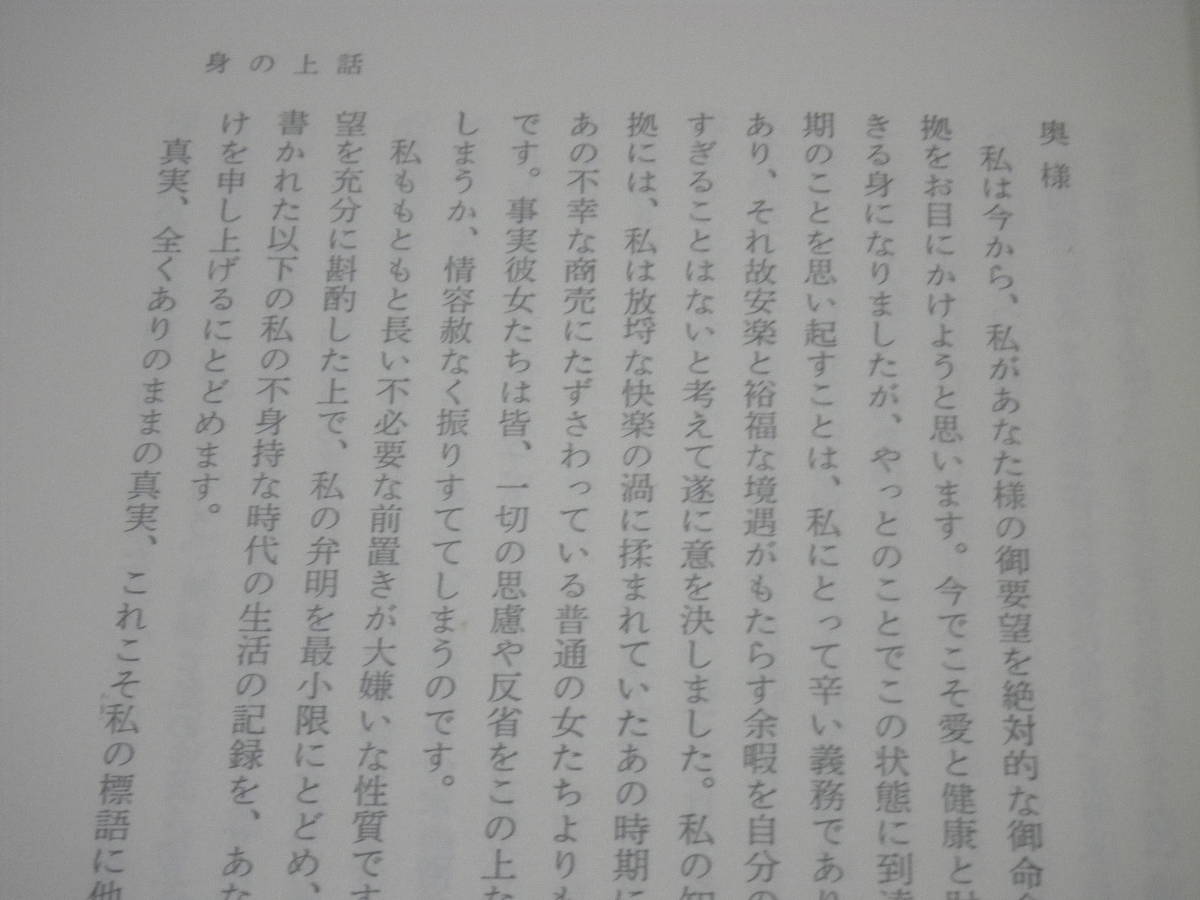 身の上話
奥様
私は今から、私があなた様の御要望を絶対的な御命
拠をお目にかけようと思います。今でこそ愛と健康と財
きる身になりましたが、やっとのことでこの状態に到達
期のことを思い起すことは、私にとって辛い義務であり
あり、それ故安楽と裕福な境遇がもたらす余暇を自分の
すぎることはないと考えて遂に意を決しました。私の知
拠には、私は放埓な快楽の渦に揉まれていたあの時期に
あの不幸な商売にたずさわっている普通の女たちよりも
です。事実彼女たちは皆、一切の思慮や反省をこの上な
しまうか、情容赦なく振りすててしまうのです。
私ももともと長い不必要な前置きが大嫌いな性質です
望を充分に斟酌した上で、私の弁明を最小限にとどめ、
書かれた以下の私の不身持な時代の生活の記録を、あな
けを申し上げるにとどめます。
真実、全くありのままの真実、これこそ私の標語に他